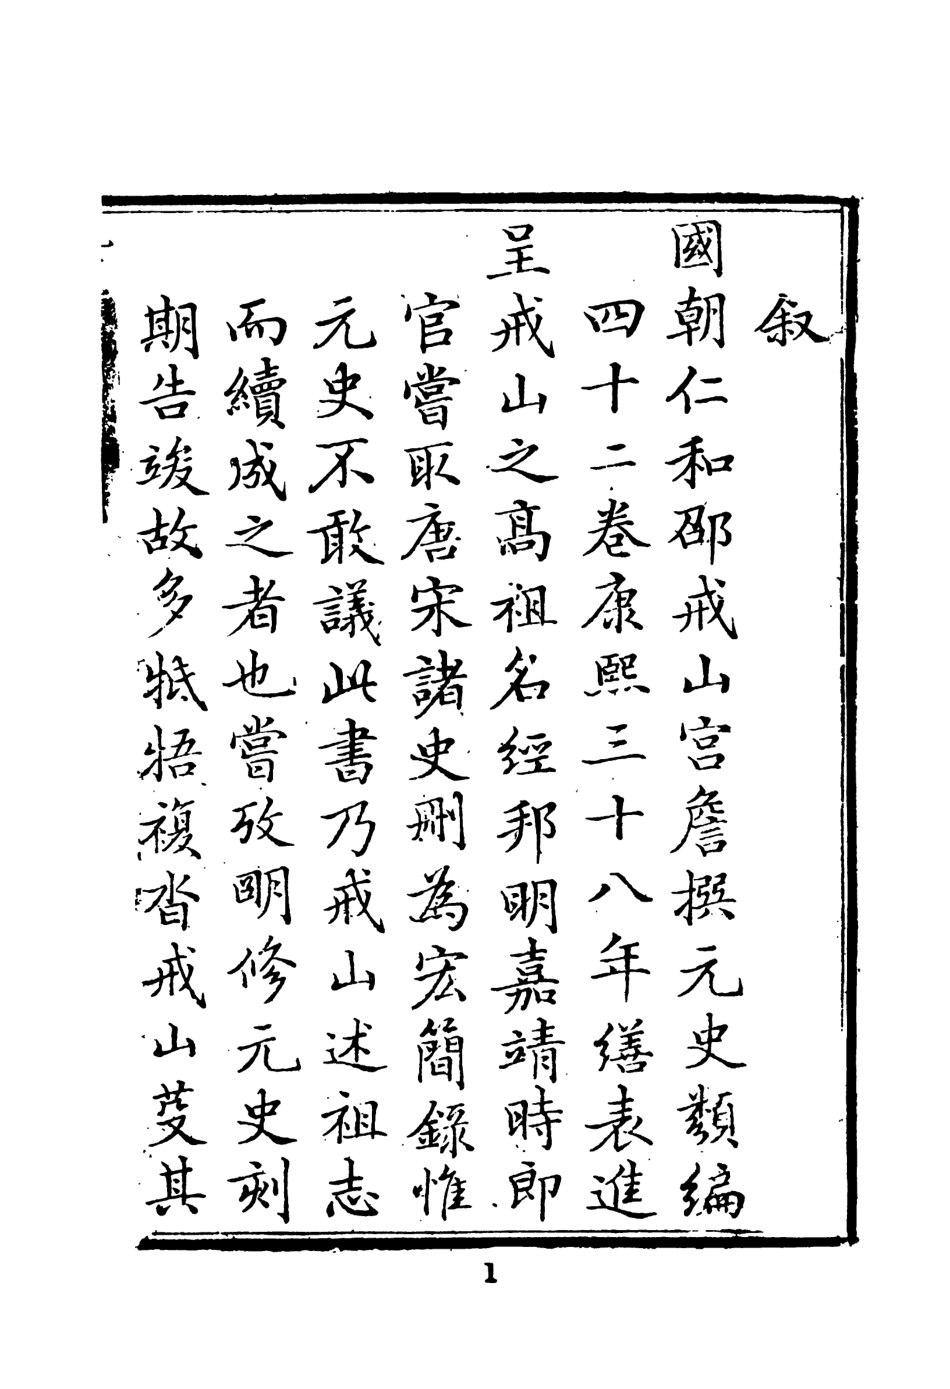 叙
國朝仁和邵戒山宫詹撰元史類編
四十二卷康熙三十八年繕表進
呈戒山之高祖名經邦明嘉靖時郎
官嘗取唐宋諸史刪為宏簡錄惟
元史不敢議此書乃戒山述祖志
而續成之者也嘗攷明修元史刻
期告竣故多牴牾複沓戒山芟其
1